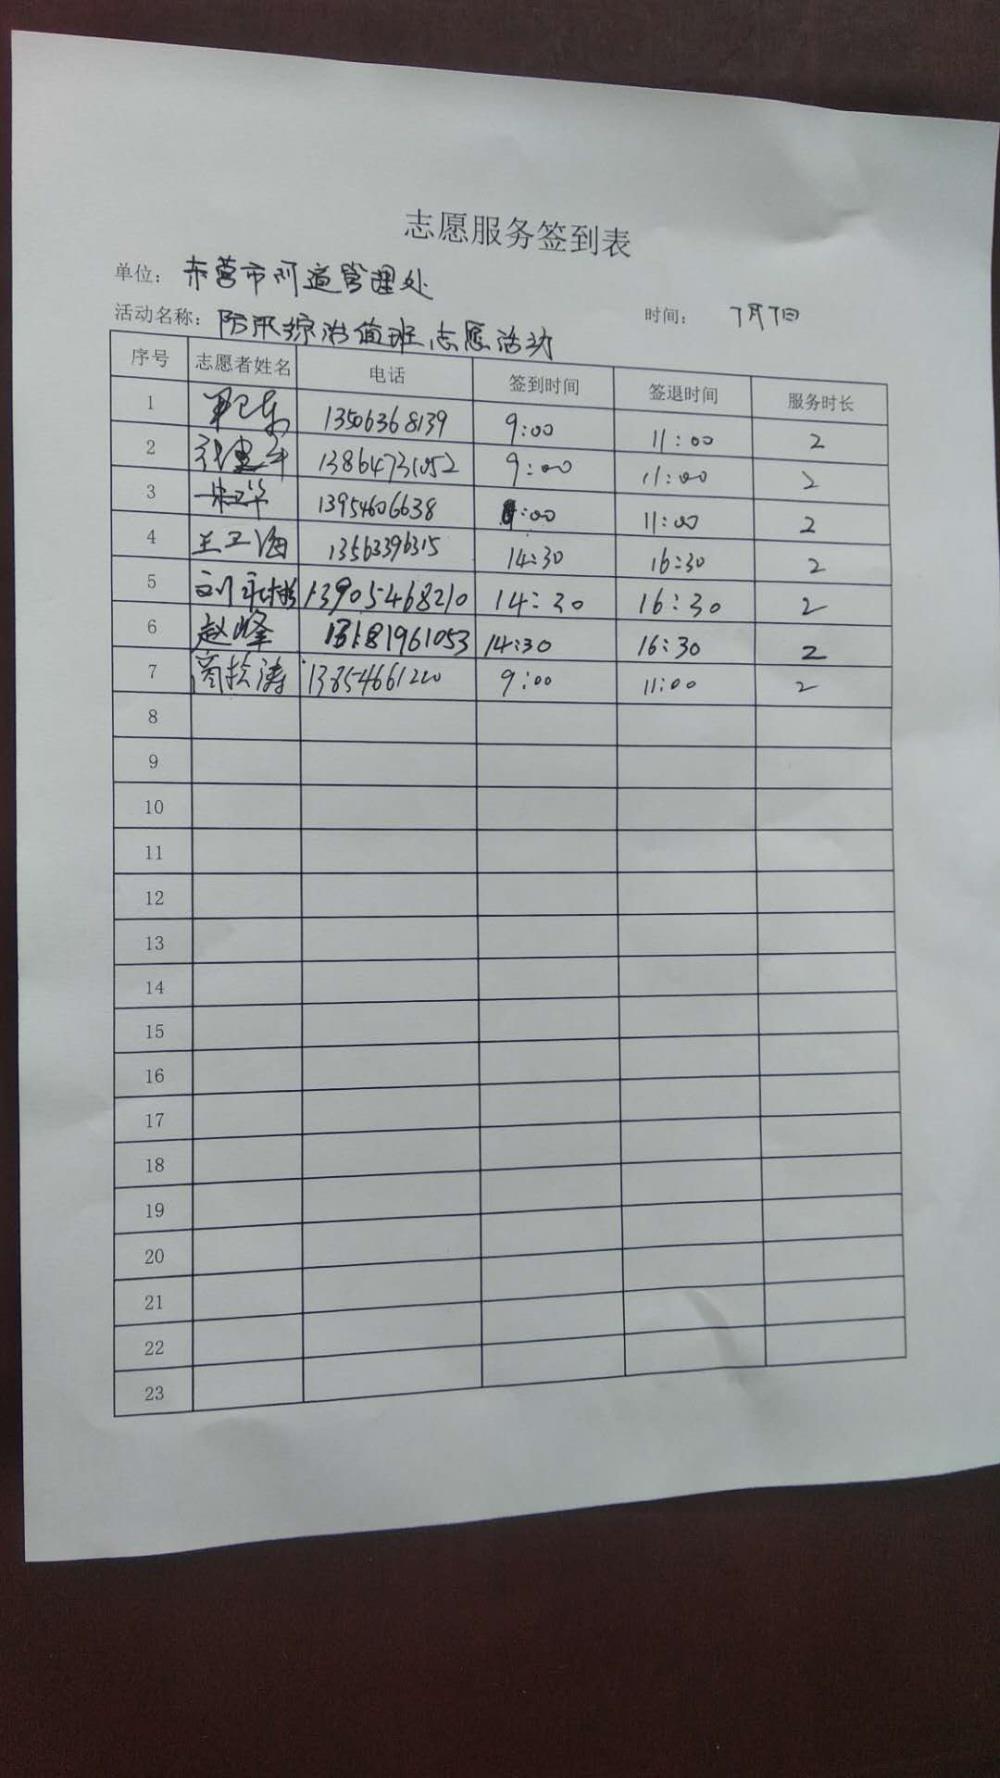 志愿服务签到表
单位: 东营市河道管理处
时间: 7月7日
活动名称: 防汛综治值班志愿活动
序号 志愿者姓名 电话 签到时间 签退时间 服务时长
1 13506368139 9:00 11:00 2
2 张建军 13864731052 9:00 11:00 2
3 13954606638 :00 11:00 2
4 王卫海 13563396315 14:30 16:30 2
5 刘 13905468210 14:30 16:30 2
6 赵峰 14:30 16:30 2
7 涛 13854661220 9:00 11:00 2
8
9
10
11
12
13
14
15
16
17
18
19
20
21
22
23